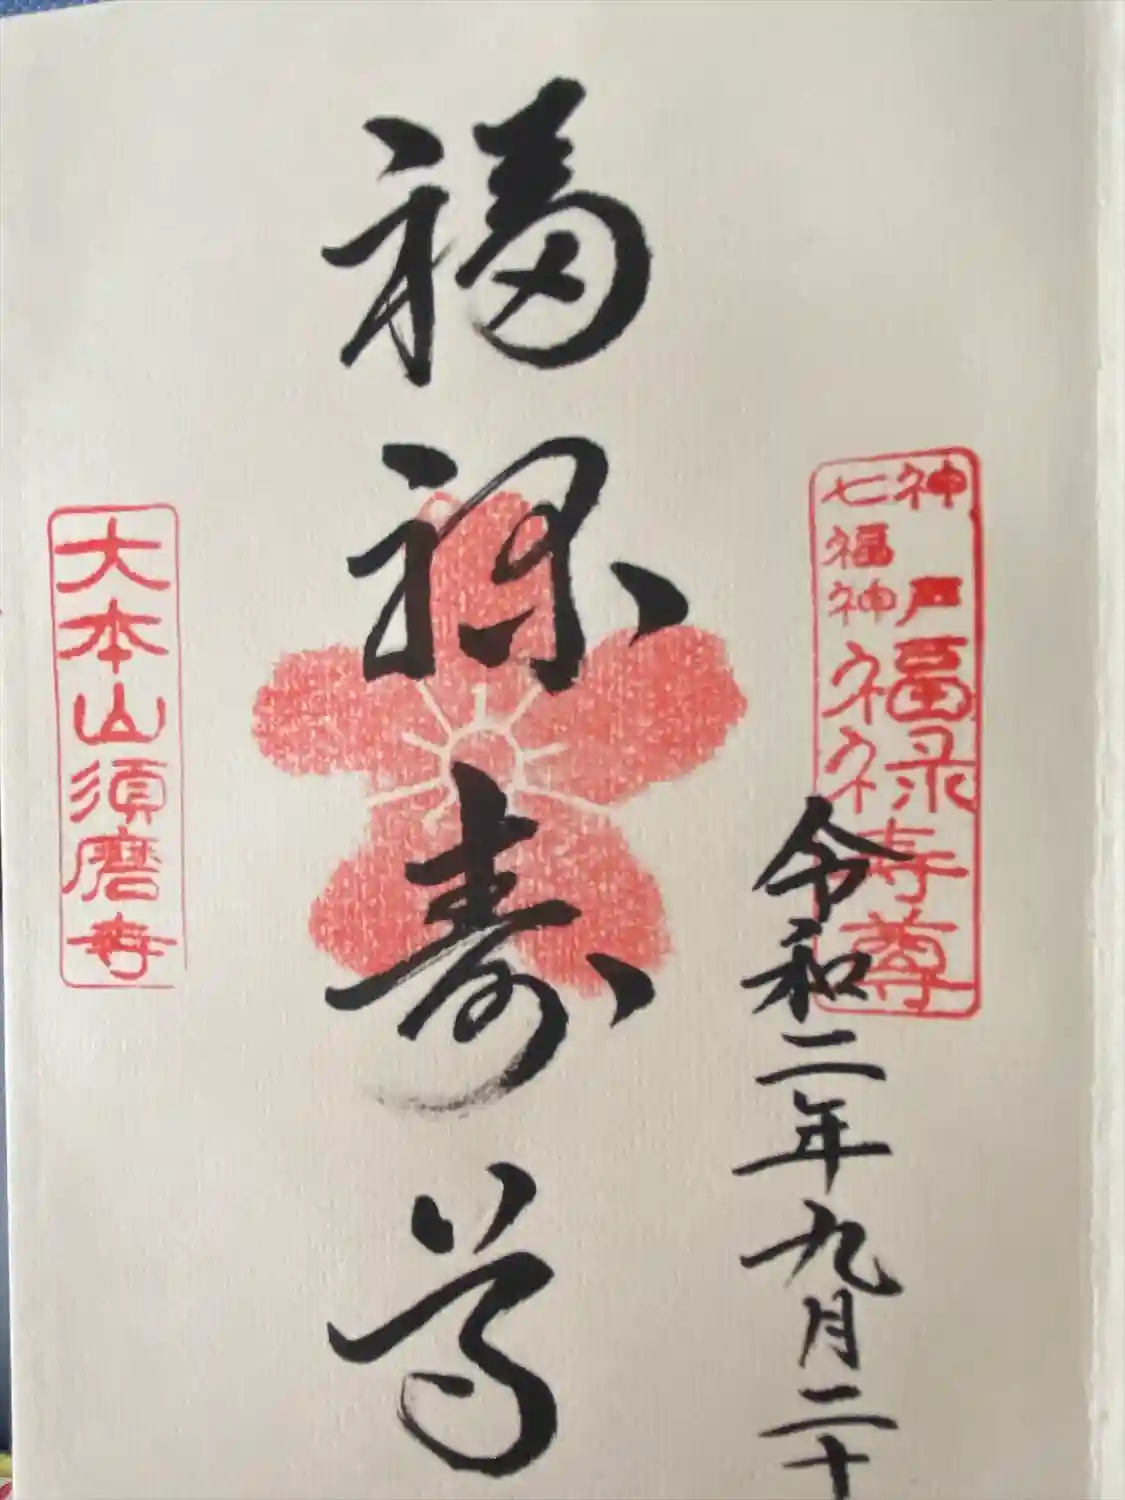 神戸七福神
福禄寿尊
令和二年九月二十
福禄寿尊
大本山須磨寺